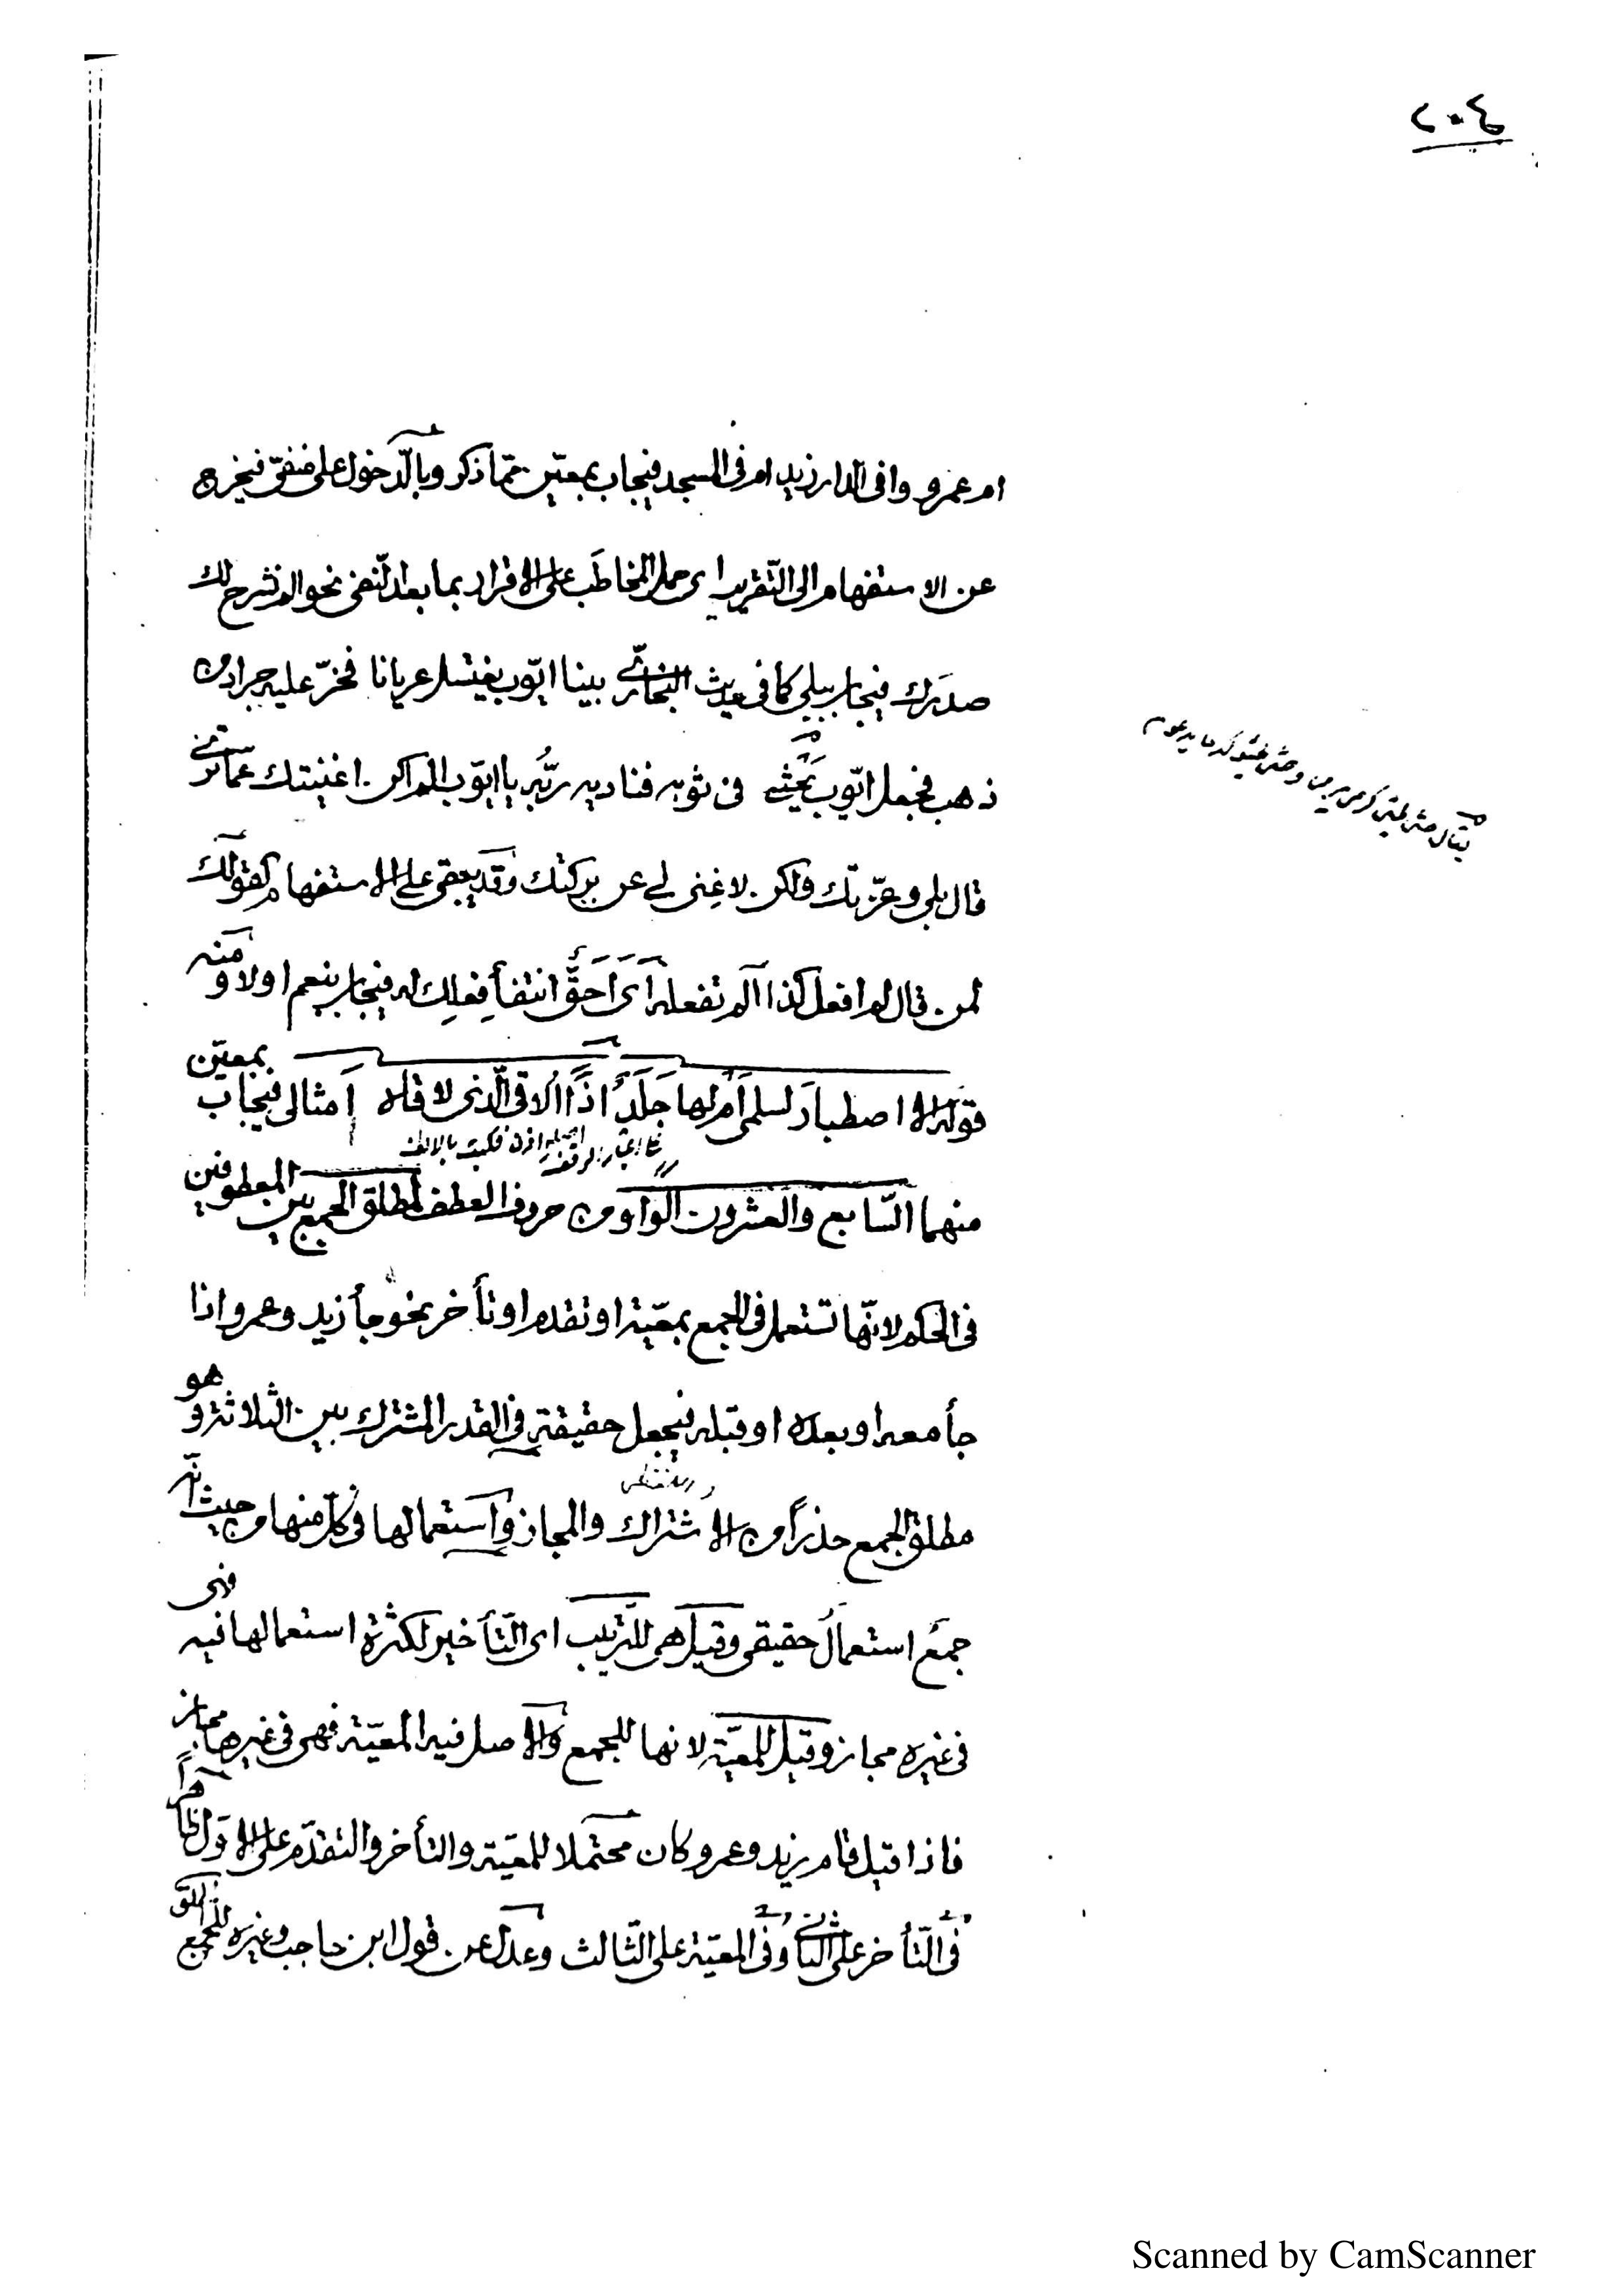 ٢٠٤
ام عمرو وافى الدار زيد ام فى المسجد فيجاب بمعين مما ذكر وبالدخول على منفى فيخرج
عن الاستفهام الى التقرير اى حمل المخاطَب على الاقرار بما بعد النفى نحو الم نشرح لك
صدرك فيجاب ببلى كما فى حديث البخارى بينا ايوب يغتسل عريانا فخرّ عليه جراد من
ذهب فجعل ايوب يَحْثِى فى ثوبه فناديه ربُّه يا ايوب الم اكن اغنيتك عمّا ترى
قال بلى وعزّتك ولكن لا غِنى لى عن بركتك وقد يبقى على الاستفهام كقولك
لمن قال لم افعل كذا ألم تفعله اى اَحَقٌّ انتفأ فعلِك له فيجاب بنعم او لا ومنه
قوله الا اصطبارَ لسلمى اَم لها جَلَدٌ اذًا ألاقى الّذى لاقاه اَمثالى فيجاب بمعيّن
منهما السّابع والعشرون الواو من حروف العطف لمطلق الجمع بين المعطوفين
فى الحكم لانّها تستعمل فى الجمع بمعيّة او تقدم او تأخر نحو جأ زيد وعمرو اذا
جأ معه او بعده او قبله فيجعل حقيقةً فى القدر المشترك بين الثلاثة وهو
مطلق الجمع حذراً من الاشتراك والمجاز واستعمالها فى كلّ منها من حيث انّه
جمعٌ استعمالٌ حقيقى وقيل هى للترتيب اى التّأخير لكثرة استعمالها فيه فهى
فى غيره مجاز وقيل للمعيّة لانها للجمع والاصل فيه المعيّة فهى فى غيرها مجاز
فاذا قيل قام زيد وعمرو كان محتملا للمعيّة والتأخر والتقدّم على الاوّل ظاهراً
فى التّأخر على الثانى وفى المعيّة على الثالث وعدل عن قول ابن حاجب وغيره للجمع المطلق
Scanned by CamScanner